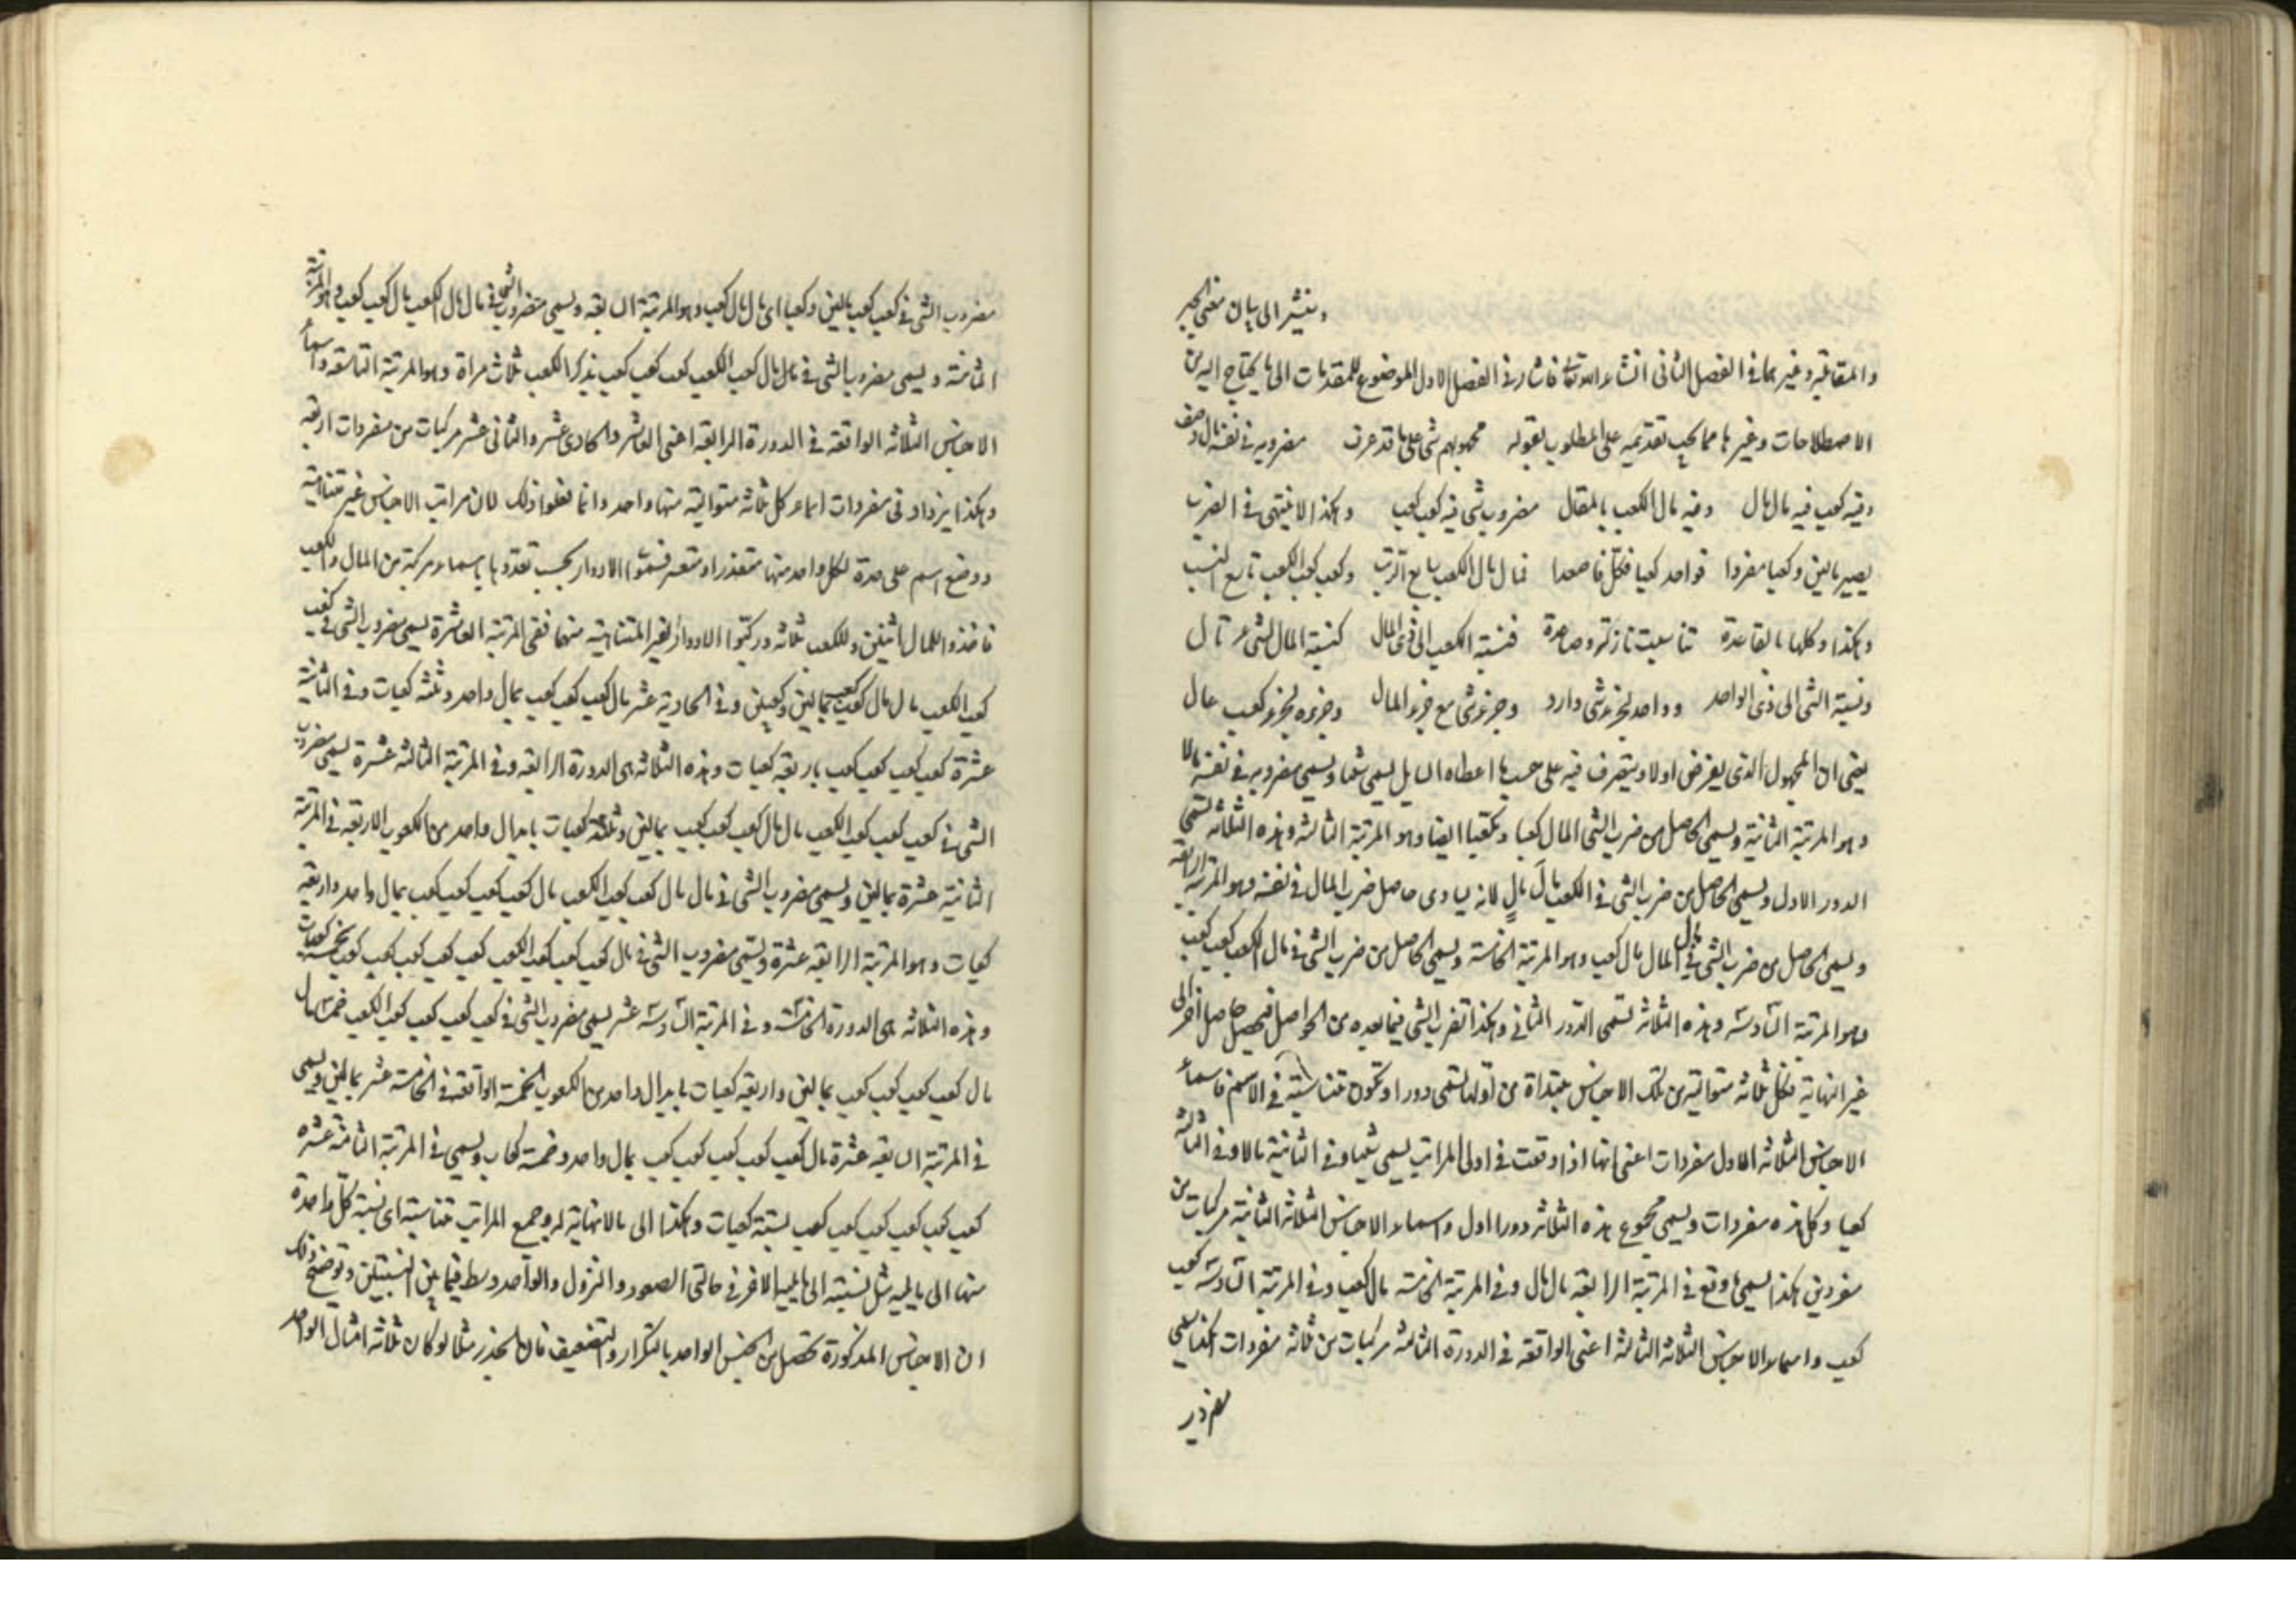 ونشير الى بيان معنى الجبر
والمقابلة وغيرهما فى الفصل الثانى انشاء الله تعالى فاشار فى الفصل الاول الموضوع للمقدمات الى ما يحتاج اليه من
الاصطلاحات وغيرها مما يجب تقديمه على المطلوب بقوله مجهولهم شئ على ما قد عرف مضروبه فى نفسه مال وصف
وفيه كعب فيه مال مال وفيه مال الكعب بالمقال مضروب شئ فيه كعب كعب وهكذا لا ينتهى فى الضرب
يصير مالين وكعبا مفردا فواحد كعبا فكل فاصعدا فمال مال الكعب سابع الرتب وكعب كعب الكعب تاسع النسب
وهكذا وكلها بالقاعدة تناسبت نازلة وصاعدة فنسبة الكعب الى ذى المال كنسبة المال لشئ عـ تال
ونسبة الشئ الى ذى الواحد وواحد لجزء شئ وارد وجزء شئ مع جزء المال وجزوه لجزء كعب عال
يعنى ان المجهول الذى يفرض اولا ويتصرف فيه على حسب ما اعطاه السايل يسمى شيئا ويسمى مضروبه فى نفسه مالا
وهو المرتبة الثانية ويسمى الحاصل من ضرب الشئ المال كعبا ومكعبا ايضا وهو المرتبة الثالثة وهذه الثلاثة تسمى
الدور الاول ويسمى الحاصل من ضرب الشئ فى الكعب مال مال لانه يساوى حاصل ضرب المال فى نفسه وهو المرتبة الرابعة
ويسمى الحاصل من ضرب الشئ فى مال المال مال كعب وهو المرتبة الخامسة ويسمى الحاصل من ضرب الشئ فى مال الكعب كعب كعب
وهو المرتبة السادسة وهذه الثلاثة تسمى الدور الثانى وهكذا تضرب الشئ فيما بعده من الحواصل فيحصل حاصل آخر الى
غير النهاية فكل ثلاثة متوالية من تلك الاجناس مبتداة من اولها تسمى دورا وتكون متناسبة فى الاسم فاسماء
الاجناس الثلاثة الاول مفردات اعنى انها اذا وقعت فى اولى المراتب يسمى شيئا وفى الثانية مالا وفى الثالثة
كعبا وكل هذه مفردات ويسمى مجموع هذه الثلاثة دورا اول واسماء الاجناس الثلاثة الثانية مركبات من
مفردين هكذا يسمى ما وقع فى المرتبة الرابعة مال مال وفى المرتبة الخامسة مال كعب وفى المرتبة السادسة كعب
كعب واسماء الاجناس الثلاثة الثالثة اعنى الواقعة فى الدورة الثالثة مركبات من ثلاثة مفردات هكذا يسمى
مضروب الشئ فى كعب كعب مالين وكعبا اى مال مال كعب وهو المرتبة السابعة ويسمى مضروب الشئ فى مال مال الكعب مال كعب كعب وهو المرتبة
الثامنة ويسمى مضروب الشئ فى مال كعب الكعب كعب كعب كعب بذكر الكعب ثلاث مراة وهو المرتبة التاسعة واسماء
الاجناس الثلاثة الواقعة فى الدورة الرابعة اعنى العاشر والحادى عشر والثانى عشر مركبات من مفردات اربعة
وهكذا يزداد فى مفردات اسماء كل ثلاثة متوالية منها واحد وانما فعلوا ذلك لان مراتب الاجناس غير متناهية
ووضع اسم على حدة لكل واحد منها متعذر او متعسر فسموا الادوار بحسب تعددها باسماء مركبة من المال والكعب
فاخذوا للمال اثنين وللكعب ثلاثة وركبوا الادوار الغير المتناهية منهما ففى المرتبة العاشرة يسمى مضروب الشئ فى كعب
كعب الكعب مال مال كعب كعب بمالين وكعبين وفى الحادية عشر مال كعب كعب كعب بمال واحد وثلثة كعبات وفى الثانية
عشرة كعب كعب كعب كعب باربعة كعبات وهذه الثلاثة هى الدورة الرابعة وفى المرتبة الثالثة عشرة يسمى مضروب
الشئ فى كعب كعب كعب الكعب مال مال كعب كعب كعب بمالين وثلثة كعبات بابدال واحد من الكعوب الاربعة فى المرتبة
الثانية عشرة بمالين ويسمى مضروب الشئ فى مال مال كعب كعب الكعب مال كعب كعب كعب كعب بمال واحد واربعة
كعبات وهو المرتبة الرابعة عشرة ويسمى مضروب الشئ فى مال كعب كعب كعب الكعب كعب كعب كعب كعب كعب بخمسة كعبات
وهذه الثلاثة هى الدورة الخامسة وفى المرتبة السادسة عشر يسمى مضروب الشئ فى كعب كعب كعب كعب الكعب خمسا مال
مال كعب كعب كعب كعب بمالين واربعة كعبات بابدال واحد من الكعوب الخمسة الواقعة فى الخامسة عشر بمالين ويسمى
فى المرتبة السابعة عشرة مال كعب كعب كعب كعب كعب بمال واحد وخمسة كعاب ويسمى فى المرتبة الثامنة عشرة
كعب كعب كعب كعب كعب كعب بستة كعبات وهكذا الى ما لا نهاية له وجميع المراتب متناسبة اى نسبة كل واحدة
منها الى ما يليه مثل نسبته الى ما يليه الاخر فى حالتى الصعود والنزول والواحد وسط فيما بين النسبتين وتوضيح ذلك
ان الاجناس المذكورة تحصل من الجنس الواحد بالتكرار والتضعيف فان الجذر مثلا لو كان ثلاثة امثال الواحد